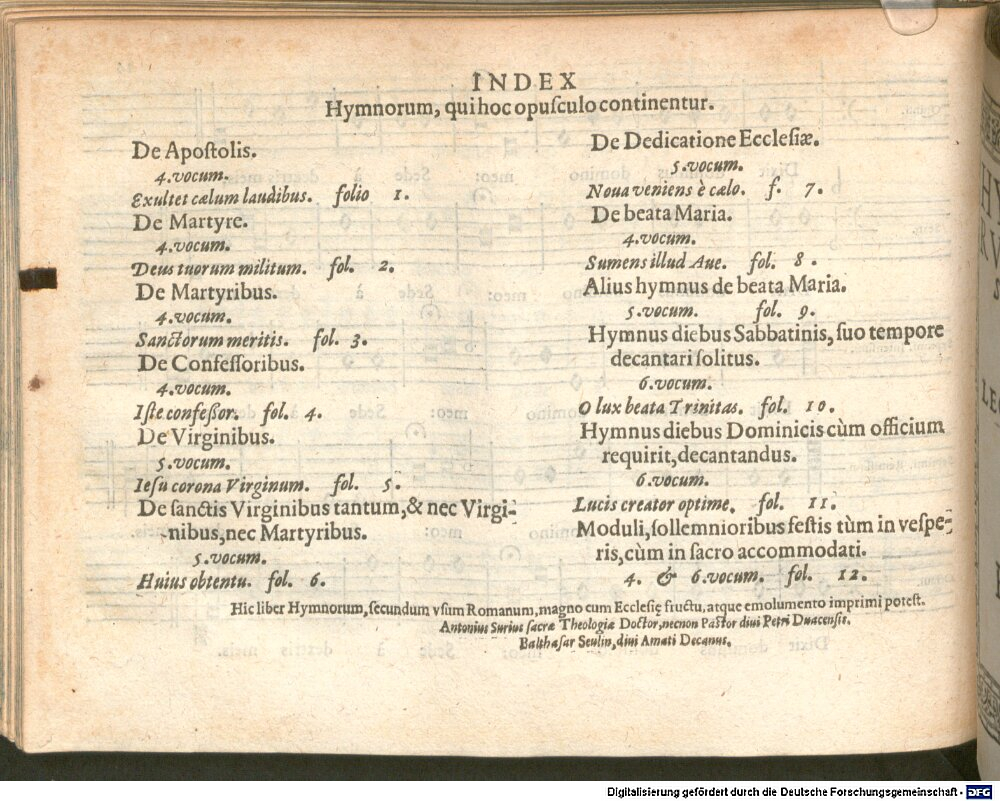 INDEX
Hymnorum, qui hoc opuſculo continentur.
De Apoſtolis.
4.vocum.
Exultet cælum laudibus. folio 1.
De Martyre.
4.vocum.
Deus tuorum militum. fol. 2.
De Martyribus.
4.vocum.
Sanctorum meritis. fol. 3.
De Confeſſoribus.
4.vocum.
Iſte confeſſor. fol. 4.
De Virginibus.
5.vocum.
Ieſu corona Virginum. fol. 5.
De ſanctis Virginibus tantum, & nec Virgi-
nibus, nec Martyribus.
5.vocum.
Huius obtentu. fol. 6.
De Dedicatione Eccleſiæ.
5.vocum.
Noua veniens è cælo. f. 7.
De beata Maria.
4.vocum.
Sumens illud Aue. fol. 8.
Alius hymnus de beata Maria.
5.vocum. fol. 9.
Hymnus diebus Sabbatinis, ſuo tempore
decantari ſolitus.
6.vocum.
O lux beata Trinitas. fol. 10.
Hymnus diebus Dominicis cùm officium
requirit, decantandus.
6.vocum.
Lucis creator optime. fol. 11.
Moduli, ſollemnioribus feſtis tùm in veſpe-
ris, cùm in ſacro accommodati.
4. & 6.vocum. fol. 12.
Hic liber Hymnorum, ſecundum vſum Romanum, magno cum Eccleſię fructu, atque emolumento imprimi poteſt.
Antonius Surius ſacræ Theologiæ Doctor, necnon Paſtor diui Petri Duacenſis.
Balthaſar Seulin, diui Amati Decanus.
Digitalisierung gefördert durch die Deutsche Forschungsgemeinschaft - DFG